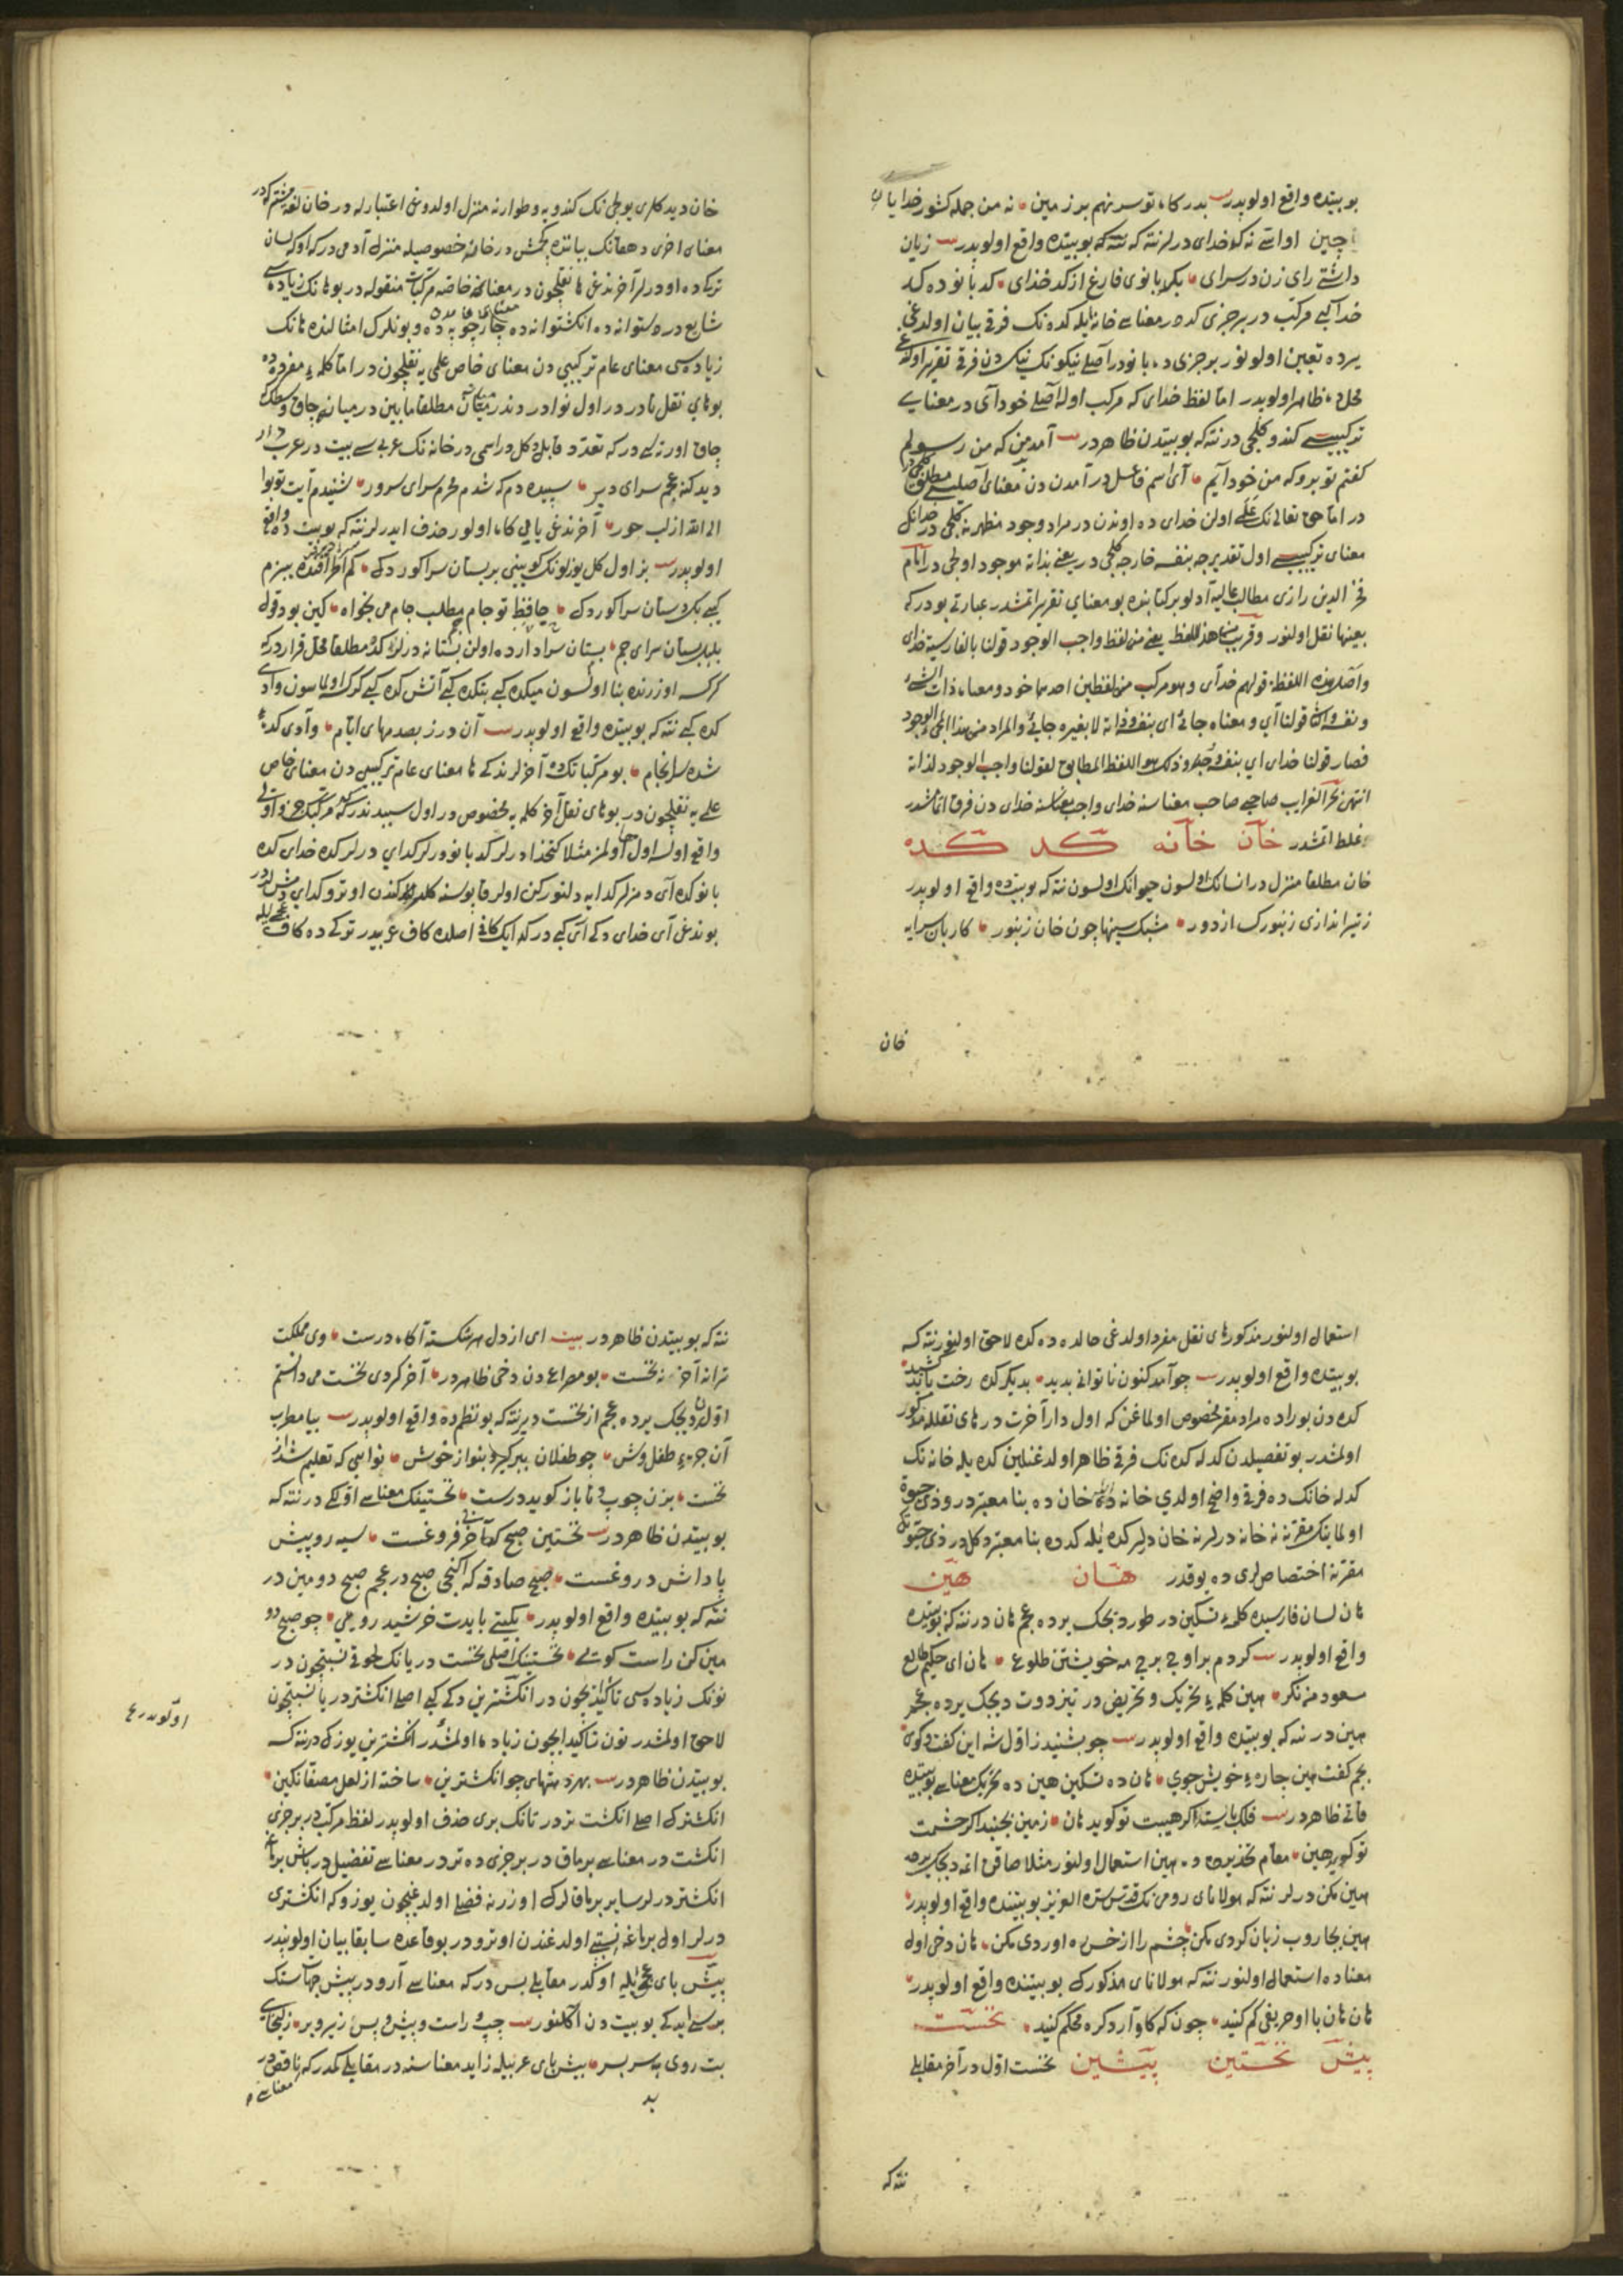 بو بیتده واقع اولوبدر بیت بدرگاه تو سر نهم بر زمین نه من جمله کشور خدایان
چین اوائته نه کدخدای درلر نته که بو بیتده واقع اولوبدر بیت زیان
داشتی رای زن در سرای بکدبانوی فارغ از کدخدای کدبانوده کد
خدا کبی مرکب در بر جزی کددر معناسی خانه ایله کده نک فرقی بیان اولدغی
یرده تعیین اولونور بر جزی ده بانودر اصلی نیکونک نیک دن فرقی تقریر اولدغی
محلده ظاهر اولوبدر اما لفظ خدای که مرکب اوله اصلی خودآی در معنای
ترکیبیسی کندو کلجی در نته که بو بیتدن ظاهردر بیت آمد من که من رسولم
کفتم تو برو که من خود آیم آی اسم فاعل در آمدن دن معنای اصلیسی مطلق کلجی
در اما حق تعالی نک علمی اولن خدای ده اوندن در مراد وجود مظهرنه کلجی در خدانک
معنای ترکیبیسی اول تقدیرجه بنفسه خارجه کلجی در یعنی بذاته موجود اولجی در امام
فخر الدین رازی مطالب عالیه آدلو بر کتابنده بو معنای تقریر اتمشدر عبارتی بودر که
بعینها نقل اولنور وقریب من هذا اللفظ یعنی من لفظ واجب الوجود قولنا بالفارسیة خدای
واصل هذه اللفظة قولهم خدآی وهو مرکب من لفظین احدهما خود ومعناه ذات الشیء
ونفسه والثانی قولنا آی ومعناه جائ ای بنفسه وذاته لا بغیره جائ والمراد من هذا المجیء الوجود
فصار قولنا خدای ای بنفسه وجد وذلک هو اللفظ المطابق لقولنا واجب الوجود لذاته
انتهی بحر الغرایب صاحبی صاحب معناسنه خدای واجب معناسنه خدای دن فرق اتماشدر
غلط اتمشدر خان خانه کد کده
خان مطلقا منزل در انسانک اولسون حیوانک اولسون نته که بو بیتده واقع اولوبدر
ز تیر اندازی زنبورک از دور مشبک سینها چون خان زنبور کاربان سرایه
خان
خان دیدکلری یولجی نک کندویه و طوارنه منزل اولدوغی اعتبارله در خان لفظ مشترکدر
معنای اخری دهقانک بیاننده کچمش در خانه خصوصیله منزل آدمی در که اوکه لسان
ترکیده او درلر آخرندغی ها نقلچون در معنای خاصه مرکباتک منقوله در بوهانک زیاده سی
شایع در دستوانه ده انکشتوانه ده چارچوبه ده و بونلرک امثالنده هانک
زیاده سی معنای عام ترکیبی دن معنای خاص علمی یه نقلچون در اما کلمه مفرده ده
بوهای نقل نادر در اول نوادردندر میانه میان مطلقا مابین در میانه چاق وسط
چاق اورته یی در که تعدد قابل دکل در اسمی در خانه نک عربیسی بیت در عرب دار
دیدکنه عجم سرای دیر سپیده دم که شدم محرم سرای سرور شنیدم آیت توبوا
الی الله از لب حور آخرندغی یایی کاه اولور حذف ایدرلر نته که بو بیت ده واقع
اولوبدر بیت بز اول کل یوزلونک کوینی بر بستان سرا کوردک کم آکا قنده بیزم
کبی بک دستان سرا کوردک حافظ تو جام مطلب جام می بخواه کین بود قول
بلبل بستان سرای جم بستان سراداردد اولن بستانه درلر کده مطلقا محل قراردر که
کرکسه اوزرنده بنا اولسون میکده کبی بتکده کبی آتش کده کبی کرک اولماسون واد
کده کبی نته که بو بیتده واقع اولوبدر بیت آن درز بصدمهای ایام وادی کدئ
شده سرانجام بو مرکباتک ده آخرلرندکی ها معنای عام ترکیبی دن معنای خاص
علمی یه نقلچون در بوهای نقل آخر کلمه یه مخصوص در اول سببدندر که کد مرکبک جزو اولی
واقع اولسه اول ها اولمز مثلا کتخدا درلر کدبانو درلر کدای درلر کده خدای کده
بانو کده آی دمزلر کدایه دلنور کن اولر قاپوسنه کلدکندن اوترو کدای دمش لردر
بوندغی آی خدای دکی آی کبی در که ایک کافی اصلده کاف عربیدر ترکی ده کاف عجمی ایله
استعمال اولنور مذکور های نقل مفرد اولدغی حالده ده کده لاحق اولنور نته که
بو بیتده واقع اولوبدر بیت چو آمد کنون ناتوانی بدید بدیکر کده رخت باید کشید
کده دن بوراده مراد مقر مخصوص اولماغن که اول دار آخرت در های نقلله مذکور
اولمشدر بو تفصیلدن کدله کده نک فرقی ظاهر اولدغنلین کده یله خانه نک
کدله خانک ده فرقی واضح اولدی خانه ده خان ده بنا معتبردر و ذی حیوة
اولمانک مقرنه نه خانه درلر نه خان دلیر کده یله کدده بنا معتبر دکل در ذی حیوتک
مقرنه اختصاص لری ده یوقدر هان هین
هان لسان فارسیده کلمه تسکین در طور دیجک یرده عجم هان در نته که بو بیتده
واقع اولوبدر بیت کردم بر اوج برج مه خویشتن طلوع هان ای حکیم طالع
مسعود من نکر هین کلمه تحریک و تحریض در تیز دوت دیجک یرده عجم
هین در نته که بو بیتده واقع اولوبدر بیت چو بشنید ز اول شه این کفت وکوی
بجم کفت هین چاره خویش جوی هان ده تسکین هین ده تحریک معناسی بو بیتده
قاتی ظاهردر بیت فلک بایستد اکر هیبت تو کوید هان زمین بجنبد اکر حشمت
تو کوید هین مقام تحذیرده ده هین استعمال اولنور مثلا صاقن اتمه دیجک یرده
هین مکن درلر نته که مولانای رومی نک قدس سره العزیز بو بیتنده واقع اولوبدر
هین بجاروب زبان کردی مکن چشم را از خس ره اوردی مکن هان دخی اول
معناده استعمال اولنور نته که مولانای مذکورک بو بیتنده واقع اولوبدر
هان هان با او حریفی کم کنید چون که کاو آرد کره محکم کنید نخست
پیش نخستین پیشین نخست اول در آخر مقابلی
نته که
نته که بو بیتدن ظاهردر بیت ای از دل هر شکسته آکاه درست وی مملکت
ترا نه آخر نه نخست بو مصراعدن دخی ظاهردر آخر کردی نخست می دانستم
اولدن دیجک یرده عجم از نخست دیر نته که بو نظم ده واقع اولوبدر بیت بیا مطرب
آن طفل وش چو طفلان ببر کیر و بنواز خوش نوایی که تعلیم شد از
نخست بزن چوب و تا باز کوید درست نخستینک معناسی اولکی در نته که
بو بیتدن ظاهردر بیت نخستین صبح کآخر بی فروغست سیه رو پیش
پاداش دروغست صبح صادقه که ایکنجی صبح در عجم صبح دومین در
نته که بو بیتده واقع اولوبدر یکیتی بایدت خرشید رویی چو صبح دو
مین کن راست کویی نخستینک اصلی نخست در یانک لحوقی نسبتچون در
نونک زیاده سی تاکیدیچون در انکشترین دکی کبی اصلی انکشتر در یا نسبتچون
لاحق اولمشدر نون تاکید ایچون زیاده اولمشدر انکشترین یوزکی در نته که
بو بیتدن ظاهردر بیت بهر دستهای چو انکشترین ساخته از لعل مصفا نکین
انکشترک اصلی انکشت تردر تانک بری حذف اولوبدر لفظ مرکب در بر جزی
انکشت در معناسی برماق در بر جزی ده تردر معناسی تفضیل در باش برماغه
انکشتر درلر سایر برماقلرک اوزرنه فضلی اولدغیچون یوزوکه انکشتری
درلر اول برماغه نسبتی اولدغندن اوترو در بو قاعده سابقا بیان اولوبندر
پیش بای عجمی یله اوکدر مقابلی پس در که معناسی آرد در پیش جهات ستک
بریسی ایدکی بو بیت دن آکلنور بیت چپ و راست و پیش و پس زیر و بر زلیخای
بت روی به سر بسر بیش بای عربیله زاید معناسنه در مقابلی کمدر که ناقص در
معناسی
ید
اولوبدر ع